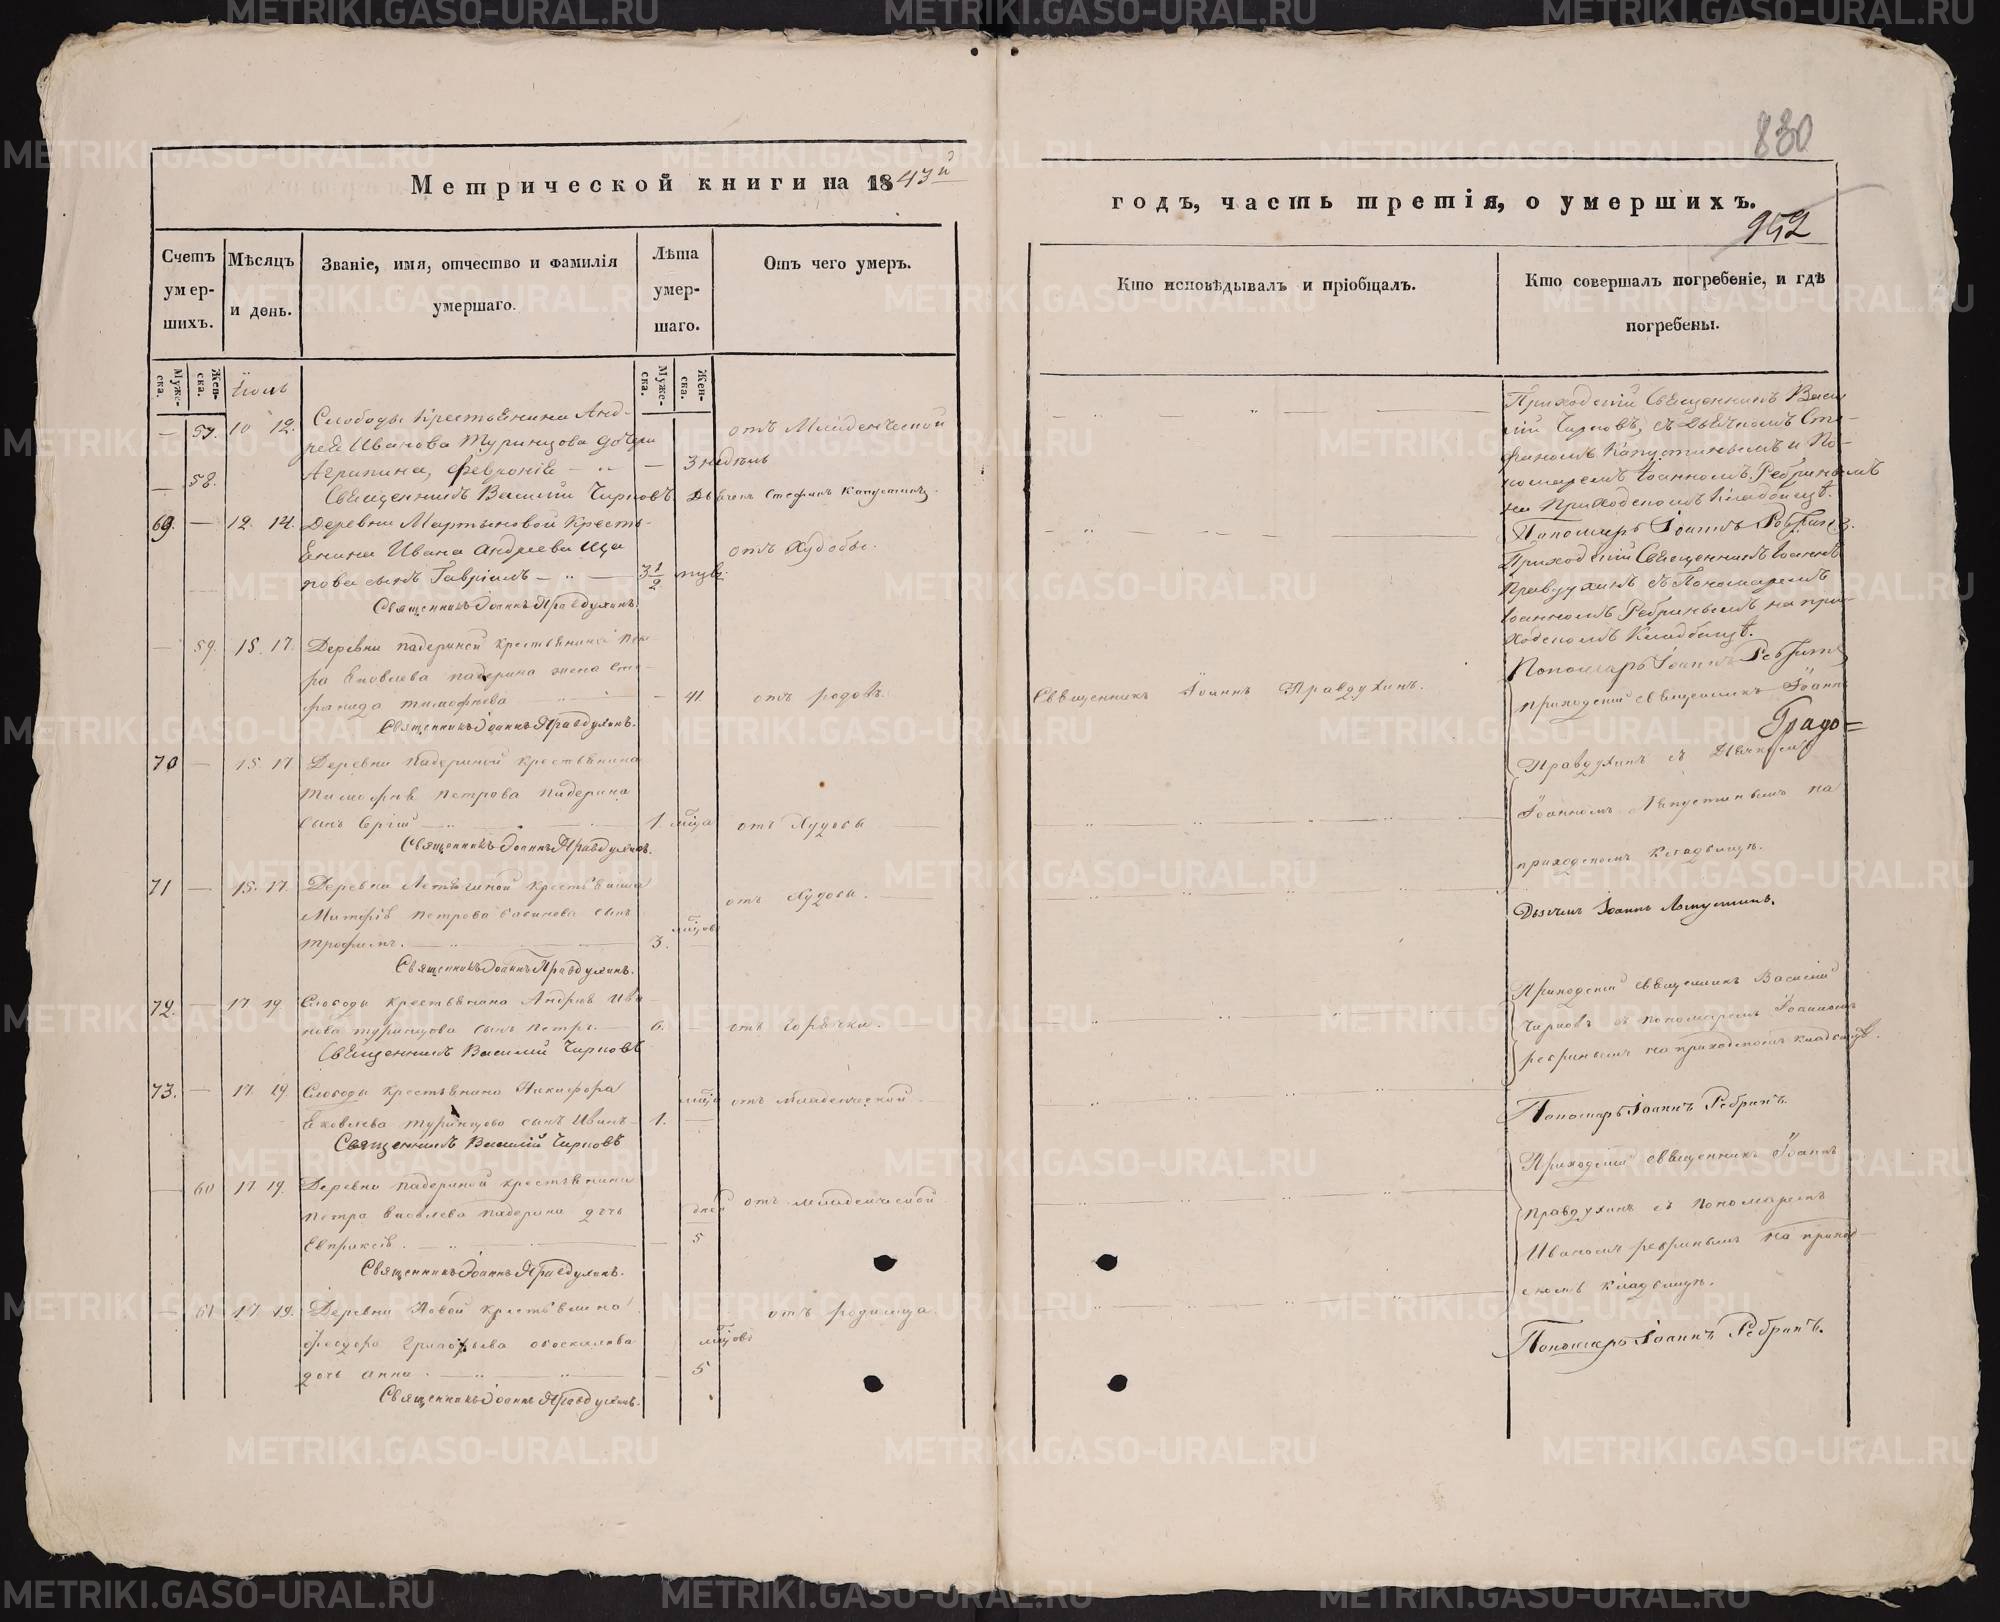 830
Метрической книги на 1843й
годъ, часть третія, о умершихъ.
952
Счетъ умер-шихъ.
Мѣсяцъ и день.
Званіе, имя, отчество и фамилія умершаго.
Лѣта умер-шаго.
Отъ чего умеръ.
Кто исповѣдывалъ и пріобщалъ.
Кто совершалъ погребеніе, и гдѣ погребены.
Муже-ска.
Жен-ска.
Муже-ска.
Жен-ска.
57. 10 12. Слободы Крестьянина Анд-
рея Иванова Туринцова дочери
58. Агрипина, Феврoнія 3 недѣль
отъ Младенческой
Священникъ Василій Чирковъ. Дьячекъ Стефанъ Капустинъ.
69. 12. 14. Деревни Мартыновой Кресть-
янина Ивана Андреева
сынъ Гавріилъ 3 1/2
отъ Худобы.
Священникъ Іоаннъ Правдухинъ.
59. 15. 17. Деревни Падериной крестьянина
Яковлева Падерина жена Сте-
фанида Тимофѣева 41. отъ родовъ
Священникъ Іоаннъ Правдухинъ.
70 15. 17 Деревни Падериной крестьянина
Тимофѣя Петрова Падерина
сынъ Сергій 1. отъ Худобы
Священникъ Іоаннъ Правдухинъ.
71 15. 17. Деревни крестьянина
Петрова сынъ
Трофимъ. 3. отъ Худобы.
Священникъ Іоаннъ Правдухинъ.
72. 17 19. Слободы крестьянина Андрея Ива
нова Туринцова сынъ Петръ. 6. отъ Горячки.
Священникъ Василій Чирковъ
73. 17. 19. Слободы крестьянина Никифора
Яковлева Туринцова сынъ Иванъ 1. отъ младенческой
Священникъ Василій Чирковъ
60 17 19. Деревни Падериной крестьянина
Петра Яковлева Падерина дочь
Евпраксія. дней 5 отъ младенческой
Священникъ Іоаннъ Правдухинъ.
61 17 19. Деревни Новой крестьянина
Феодора Григорьева
дочь Анна. 5 отъ родимца
Священникъ Іоаннъ Правдухинъ.
Священникъ Іоаннъ Правдухинъ.
Приходскій Священникъ Васи
лій Чирковъ, съ Дьячкомъ Сте-
фаномъ Капустинымъ и По-
номаремъ Іоанномъ Ребринымъ
на Приходскомъ Кладбищѣ.
Пономарь Іоаннъ Ребринъ.
Приходскій Священникъ Іоаннъ
Правдухинъ съ Пономаремъ
Іоанномъ Ребринымъ на при-
ходскомъ Кладбищѣ.
Пономарь Іоаннъ Ребринъ
приходскій священникъ Іоаннъ
Градо=
Правдухинъ съ Дьячкомъ
Іоанномъ на
приходскомъ кладбищѣ.
Дьячекъ Іоаннъ
Приходскій священникъ Василій
Чирковъ съ пономаремъ Іоанномъ
ребринымъ на приходскомъ кладбищѣ.
Пономарь Іоаннъ Ребринъ.
Приходскій священникъ Іоаннъ
Правдухинъ съ Пономаремъ
Иваномъ ребринымъ на приход-
скомъ кладбищѣ.
Пономарь Іоаннъ Ребринъ.
METRIKI.GASO-URAL.RU